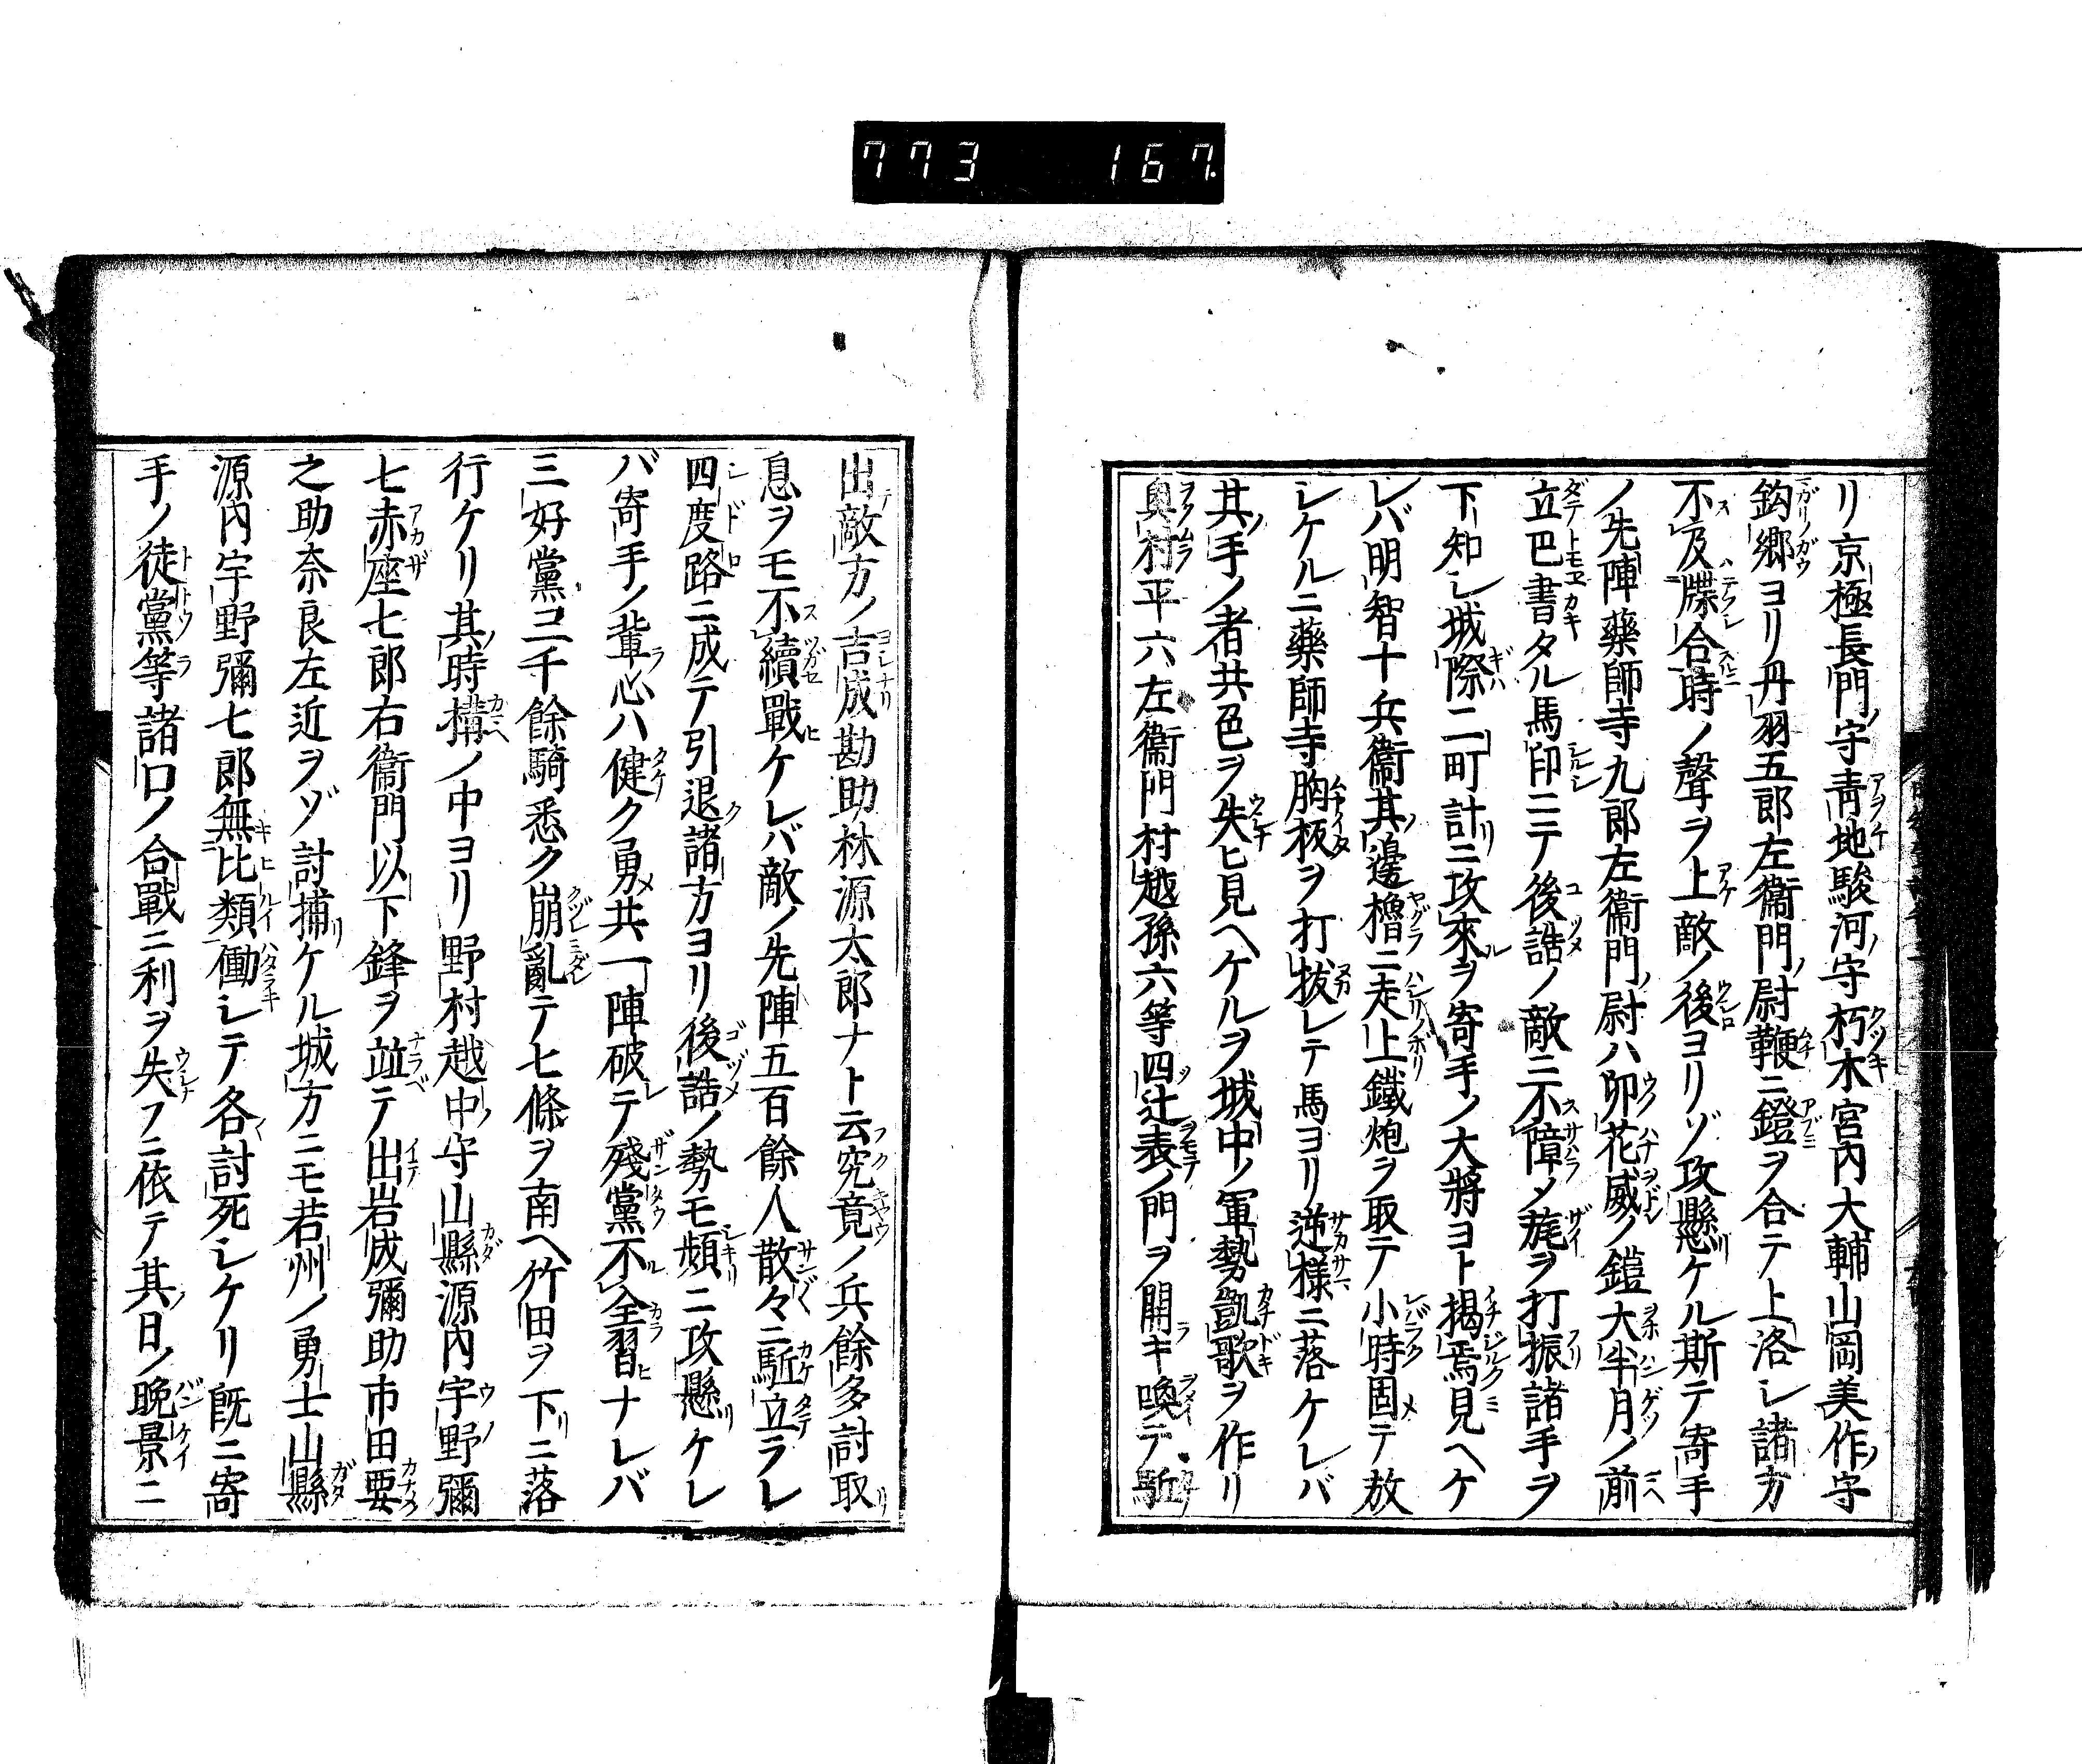 773 167
リ京極長門守青地駿河守朽木宮内大輔山岡美作守
鈎郷ヨリ丹羽五郎左衞門尉鞭ニ鐙ヲ合テ上洛シ諸方
不及牒合時ノ聲ヲ上敵ノ後ヨリゾ攻懸ケル斯テ寄手
ノ先陣藥師寺九郎左衞門尉ハ卯花威ノ鎧大半月ノ前
立巴書タル馬印ニテ後詰ノ敵ニ不障ノ旄ヲ打振諸手ヲ
下知シ城際二町計ニ攻來ヲ寄手ノ大將ヨト掲焉見ヘケ
レバ明智十兵衞其邊櫓ニ走上鐵炮ヲ取テ小時固テ放
シケルニ藥師寺胸板ヲ打拔レテ馬ヨリ逆樣ニ落ケレバ
其手ノ者共色ヲ失ヒ見ヘケルヲ城中ノ軍勢凱歌ヲ作リ
奥村平六左衞門村越孫六等四辻表ノ門ヲ開キ喚テ駈
出敵方ノ吉成勘助林源太郎ナト云究竟ノ兵餘多討取
息ヲモ不續戰ケレバ敵ノ先陣五百餘人散々ニ駈立ラレ
四度路ニ成テ引退諸方ヨリ後詰ノ勢モ頻ニ攻懸ケレ
バ寄手ノ輩心ハ健ク勇共一陣破テ殘黨不全習ナレバ
三好黨二千餘騎悉ク崩亂テ七條ヲ南ヘ竹田ヲ下ニ落
行ケリ其時搆ノ中ヨリ野村越中守山縣源内宇野彌
七赤座七郎右衞門以下鋒ヲ竝テ出岩成彌助市田要
之助奈良左近ヲゾ討捕ケル城方ニモ若州ノ勇士山縣
源内宇野彌七郎無比類働シテ各討死シケリ既ニ寄
手ノ徒黨等諸口ノ合戰ニ利ヲ失フニ依テ其日ノ晩景ニ